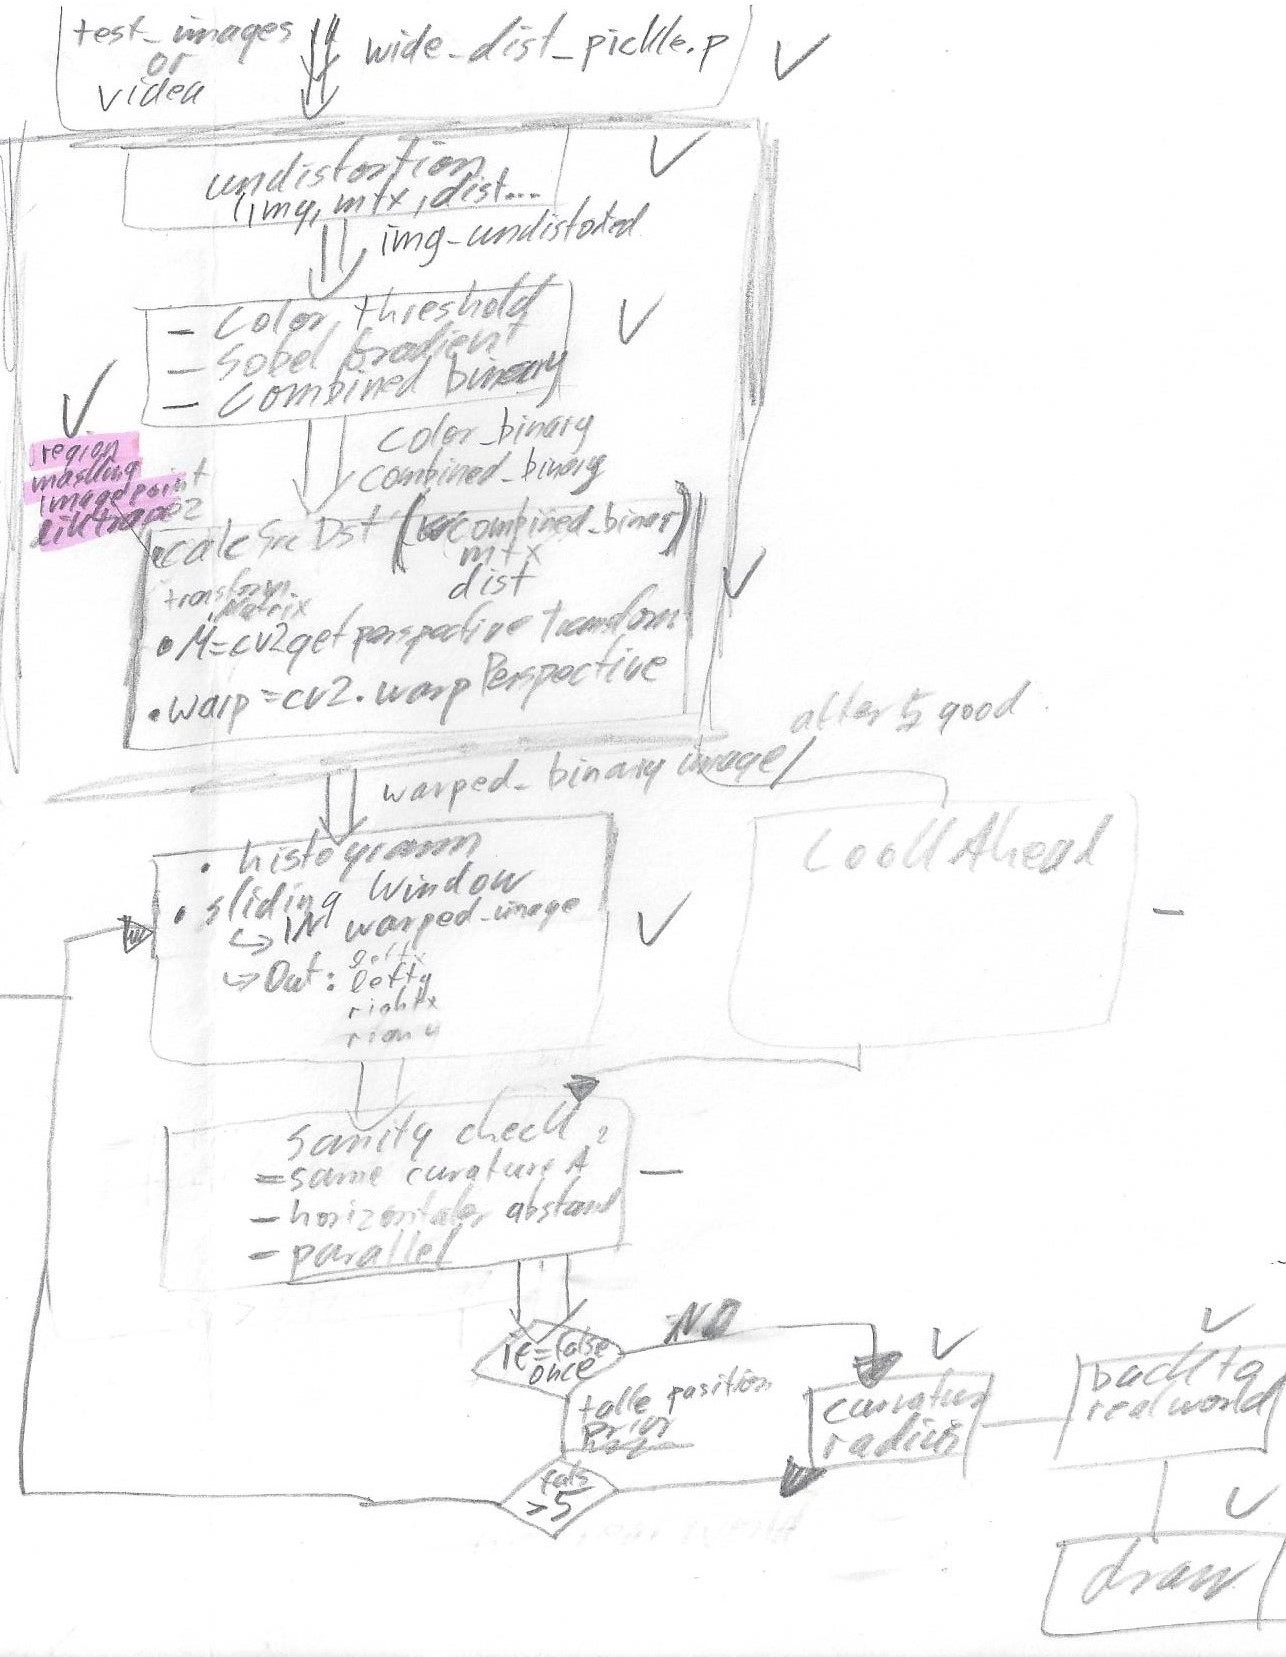 test_images
or
videa
wide_dist_pickle.p
undistortion
(img, mtx, dist...
img_undistoted
- Color threshold
- Sobel Gradient
- Combined binary
color_binary
combined_binary
region
masking
imagepoint
calc Src Dst (combined_binar)
mtx
dist
transform.
Matrix
• M=cv2getperspective transform
• warp=cv2.warpPerspective
after 5 good
warped_binary image
• histogramm
• sliding Window
↳ IN warped_image
↳ Out:
lefty
rightx
Look Ahead
Sanity check
- same curature
- horizontaler abstand
- parallel
if=false
once
NO
take position
prior
>5
curvatur
radius
back to
real world
draw